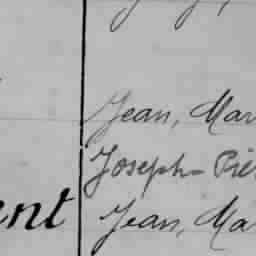 Jean, Mar
Joseph-Pier
ent Jean, Mar